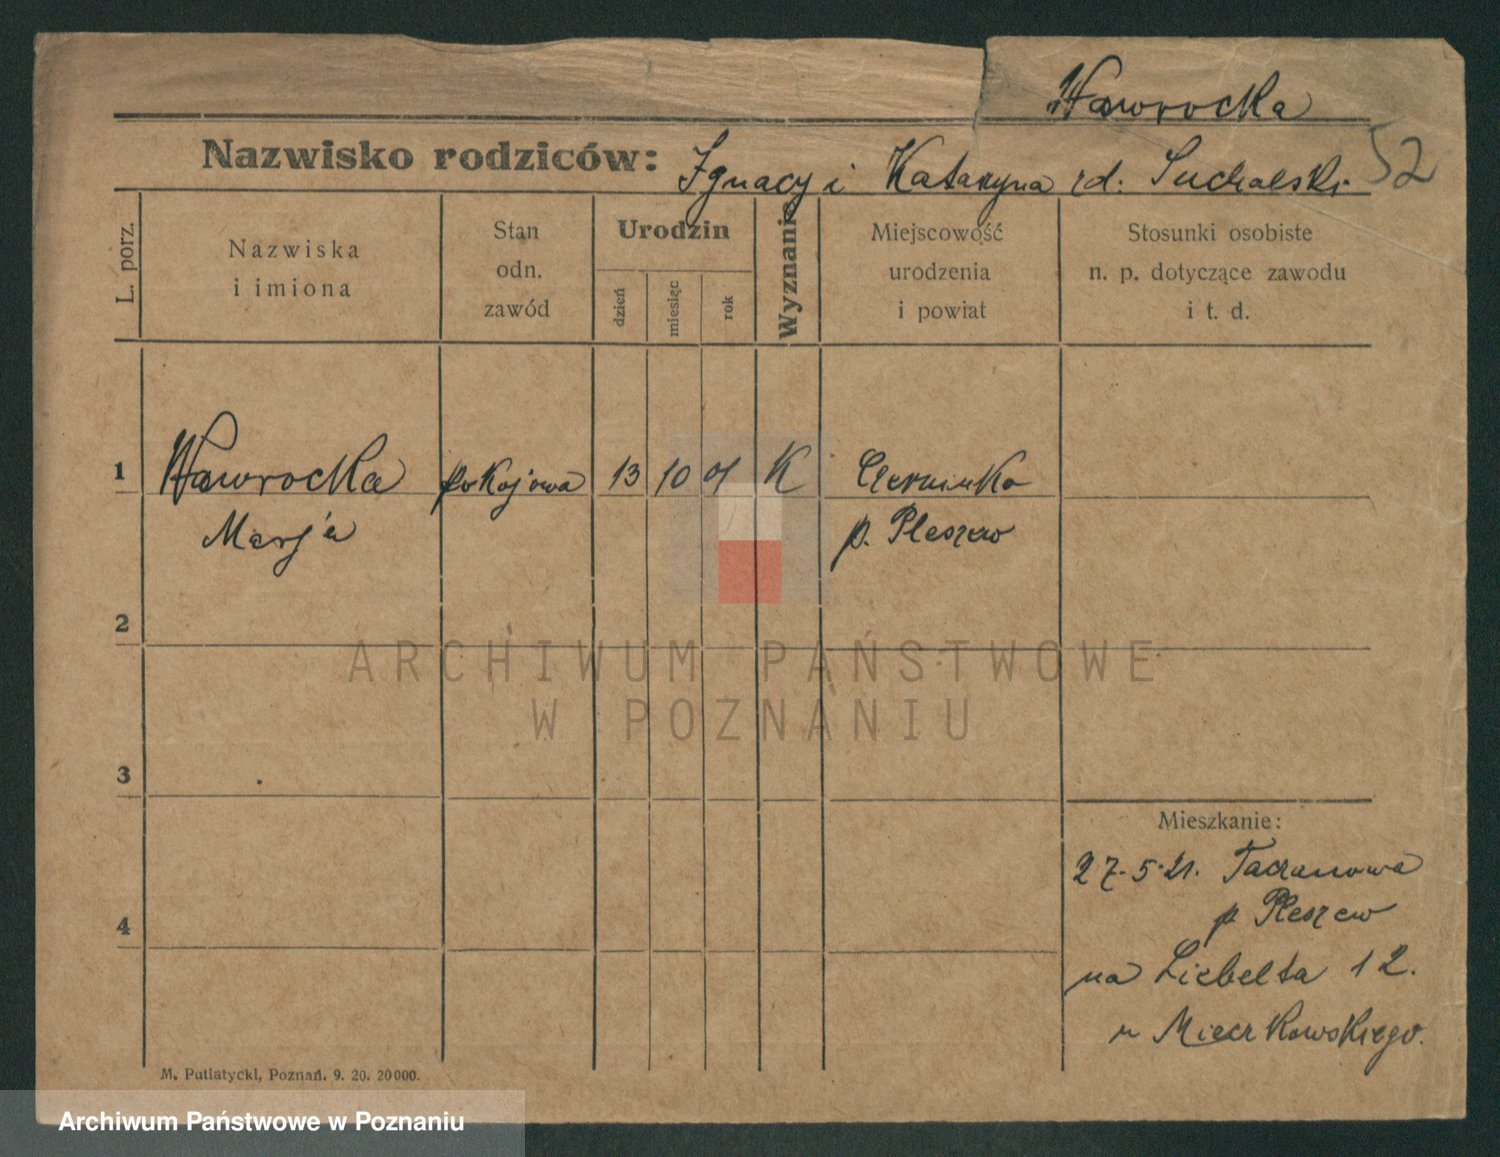 Nawrocka
52
Nazwisko rodziców: Ignacy i Katarzyna rd. Suchalski
L. porz.
Nazwiska
i imiona
Stan
odn.
zawód
Urodzin
dzień
miesiąc
rok
Wyznanie
Miejscowość
urodzenia
i powiat
Stosunki osobiste
n. p. dotyczące zawodu
i t. d.
1 Nawrocka pokojowa 13 10 01 K Czerminko
Marja p. Pleszew
2
3
4
Mieszkanie:
27.5.21. Taczanowa
p Pleszew
na Liebelta 12.
u Mieczkowskiego.
M. Putiatycki, Poznań. 9. 20. 20000.
ARCHIWUM PAŃSTWOWE
W POZNANIU
Archiwum Państwowe w Poznaniu